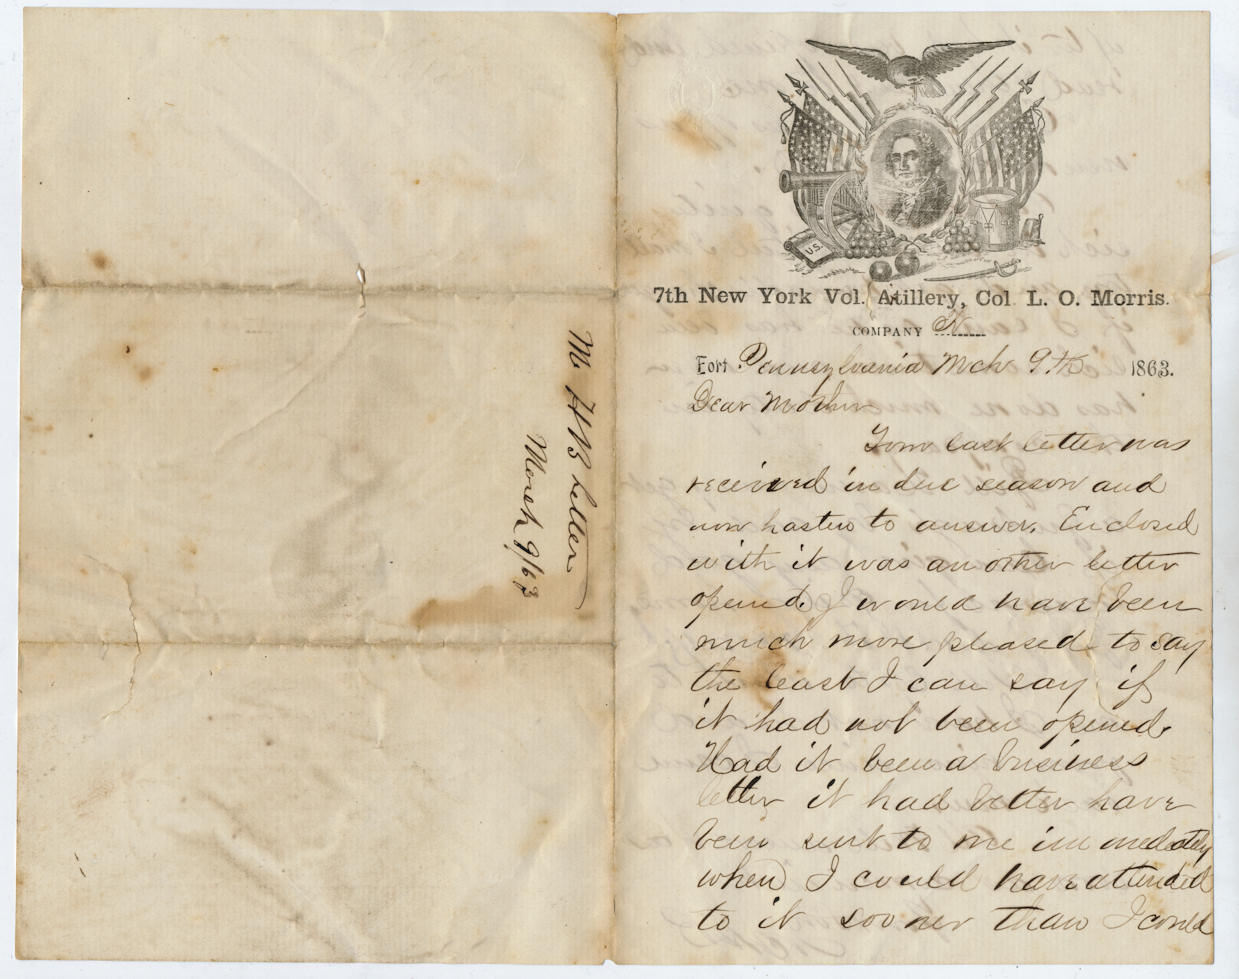 M. H B letter
March 9/63
U.S.
7th New York Vol. Artillery, Col. L. O. Morris.
COMPANY
Fort Pennsylvania Mch 9th 1863.
Dear Mother
Your last letter was
received in due season and
now hasten to answer. Enclosed
with it was another letter
opened. I would have been
much more pleased to say
the least I can say if
it had not been opened.
Had it been a business
letter it had better have
been sent to me immediately
when I could have attended
to it sooner than I could